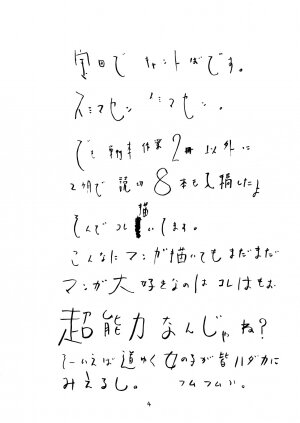 室田で キャントばです。
スミマセン スミマセン。
でも 作業 2 以外に
2ヶ月で 読切 8本も 投稿したよ
そんでコレ描いてます。
こんなにマンガ描いてもまだまだ
マンガ大好きなのは コレはもお
超能力なんじゃね?
そーいえば 道ゆく女の子が皆ハダカに
みえるし。 フムフム。
4